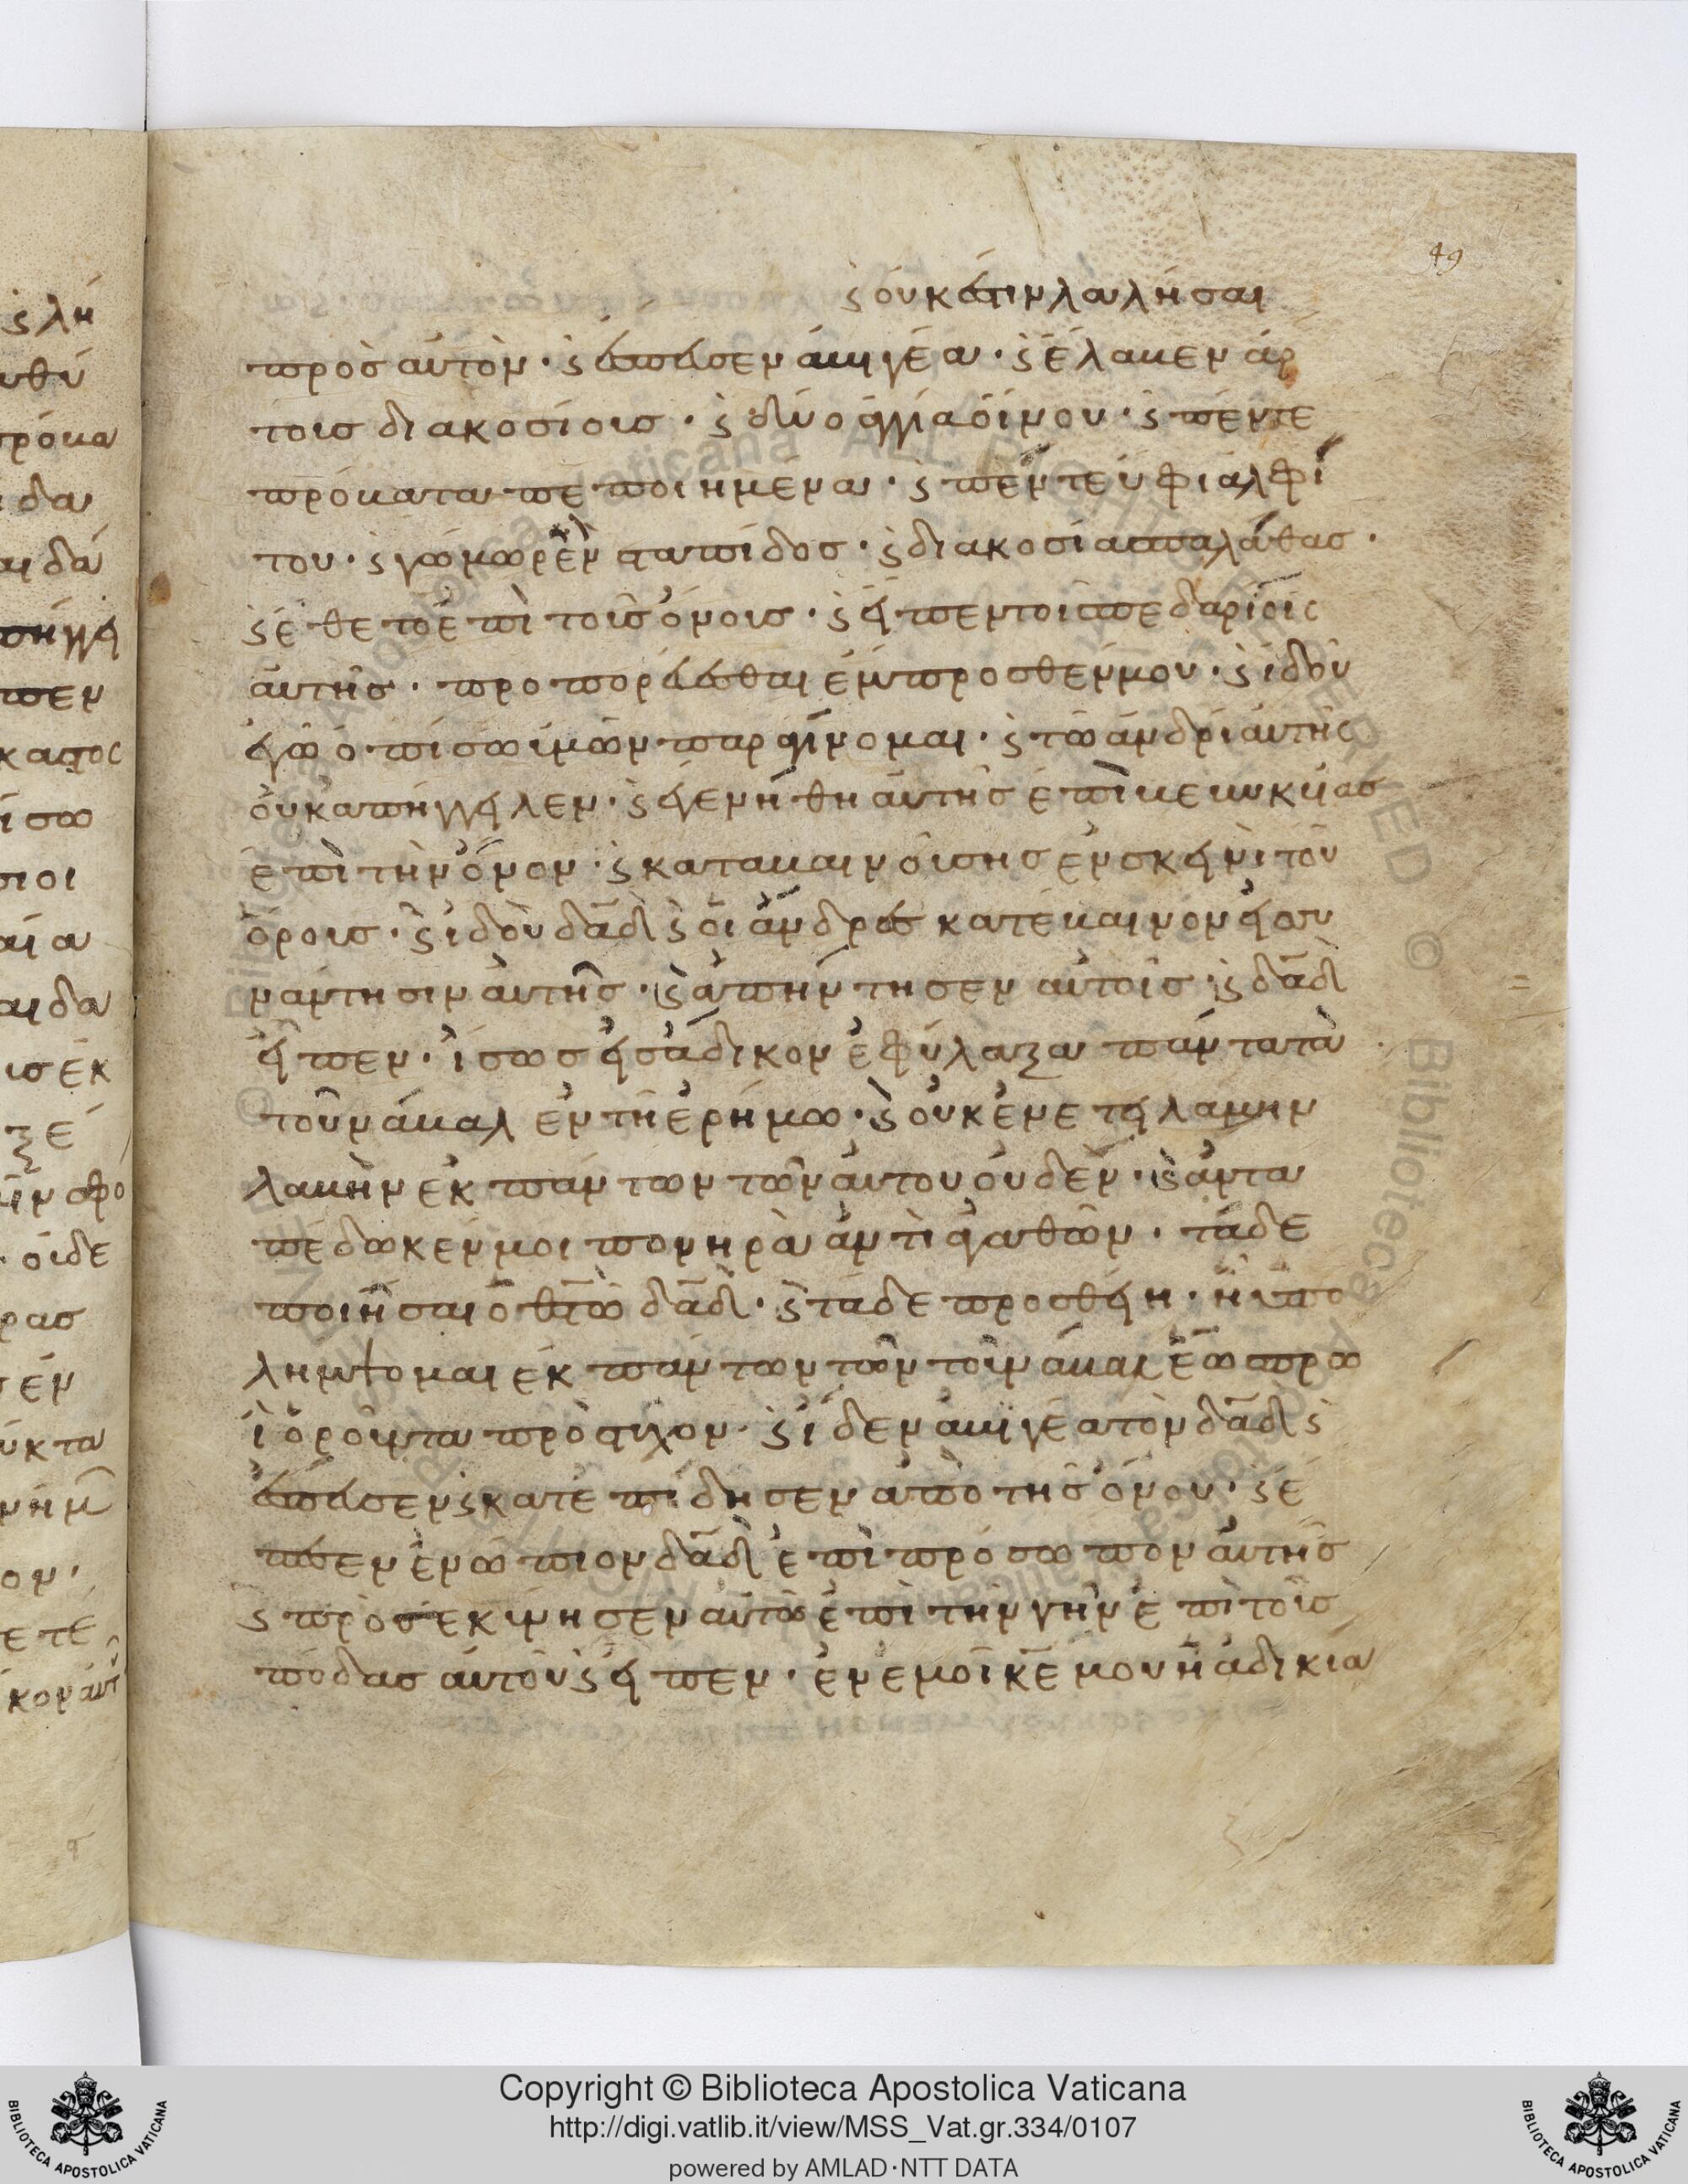 49
ϛ οὐκ ἔστιν λαλῆσαι
πρὸς αὐτόν · ϛ ἔσπευσεν ἀβιγέα · ϛ ἔλαβεν ἄρ
τους διακοσίους · ϛ δύο ἀγγεῖα οἴνου · ϛ πέντε
πρόβατα πεποιημένα · ϛ πέντε ὑφι ἀλφί
του · ϛ γωμωρ ἓν σταπίδος · ϛ διακοσίας παλάθας ·
ϛ ἔθετο ἐπὶ τοὺς ὄνους · ϛ εἶπεν τοῖς πεδαρίοις
αὐτῆς · προπορεύεσθαι ἔμπροσθέν μου · ϛ ἰδοὺ
ἐγὼ ὀπίσω ὑμῶν παραγίνομαι · ϛ τῷ ἀνδρὶ αὐτῆς
οὐκ ἀπήγγειλεν · ϛ ἐγενήθη αὐτῆς ἐπιβεβηκυίας
ἐπὶ τὴν ὄνον · ϛ καταβαινούσης ἐν σκέπει τοῦ
ὄρους · ϛ ἰδοὺ δᾱδ ϛ οἱ ἄνδρες κατέβαινον εἰς συ
νάντησιν αὐτῆς · ϛ ἀπήντησεν αὐτοῖς · ϛ δᾱδ
εἶπεν · ἴσως εἰς ἄδικον ἐφύλαξα πάντα τὰ
τοῦ νάβαλ ἐν τῇ ἐρήμῳ · ϛ οὐκ ἐνετειλάμην
λαβεῖν ἐκ πάντων τῶν αὐτοῦ οὐδέν · ϛ ἀντα
πέδωκέν μοι πονηρὰ ἀντὶ ἀγαθῶν · τάδε
ποιῆσαι ὁ θ̄ς τῷ δᾱδ · ϛ τάδε προσθείη · εἰ ὑπο
λήψομαι ἐκ πάντων τῶν τοῦ νάβαλ ἕως πρωῒ
οὐροῦντα πρὸς τοῖχον · ϛ εἶδεν ἀβιγέα τὸν δᾱδ ϛ
ἔσπευσεν ϛ κατεπίδησεν ἀπὸ τῆς ὄνου · ϛ ἔ
πεσεν ἐνώπιον δᾱδ ἐπὶ πρόσωπον αὐτῆς
ϛ προσεκύνησεν αὐτῷ ἐπὶ τὴν γῆν ἐπὶ τοὺς
πόδας αὐτοῦ ϛ εἶπεν · ἐν ἐμοὶ κ̄ε μου ἡ ἀδικία
Copyright © Biblioteca Apostolica Vaticana
http://digi.vatlib.it/view/MSS_Vat.gr.334/0107
powered by AMLAD·NTT DATA
BIBLIOTECA APOSTOLICA VATICANA
BIBLIOTECA APOSTOLICA VATICANA